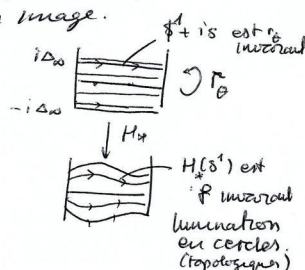 image.
𝕊¹ + is est r_θ
invariant
iΔ∞
r_θ
-iΔ∞
H_*
H_*(𝕊¹) est
f invariant
lamination
en cercles.
(topologiques)